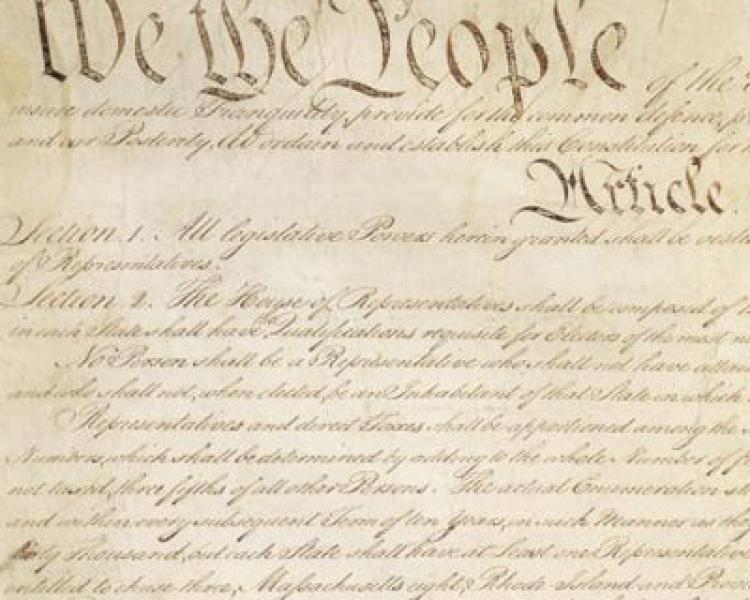 We the People of the
insure domestic Tranquility, provide for the common defence,
and our Posterity, do ordain and establish this Constitution for
Article.
Section. 1. All legislative Powers herein granted shall be
of Representatives.
Section. 2. The House of Representatives shall be composed of
in each State shall have Qualifications requisite for Electors of the most
No Person shall be a Representative who shall not have
and who shall not, when elected, be an Inhabitant of that State in which
Representatives and direct Taxes shall be apportioned among the
Numbers, which shall be determined by adding to the whole Number of
not taxed, three fifths of all other Persons. The actual Enumeration
and within every subsequent Term of ten Years, in such Manner as they
thirty Thousand, but each State shall have at Least one Representative
entitled to chuse three, Massachusetts eight, Rhode-Island and